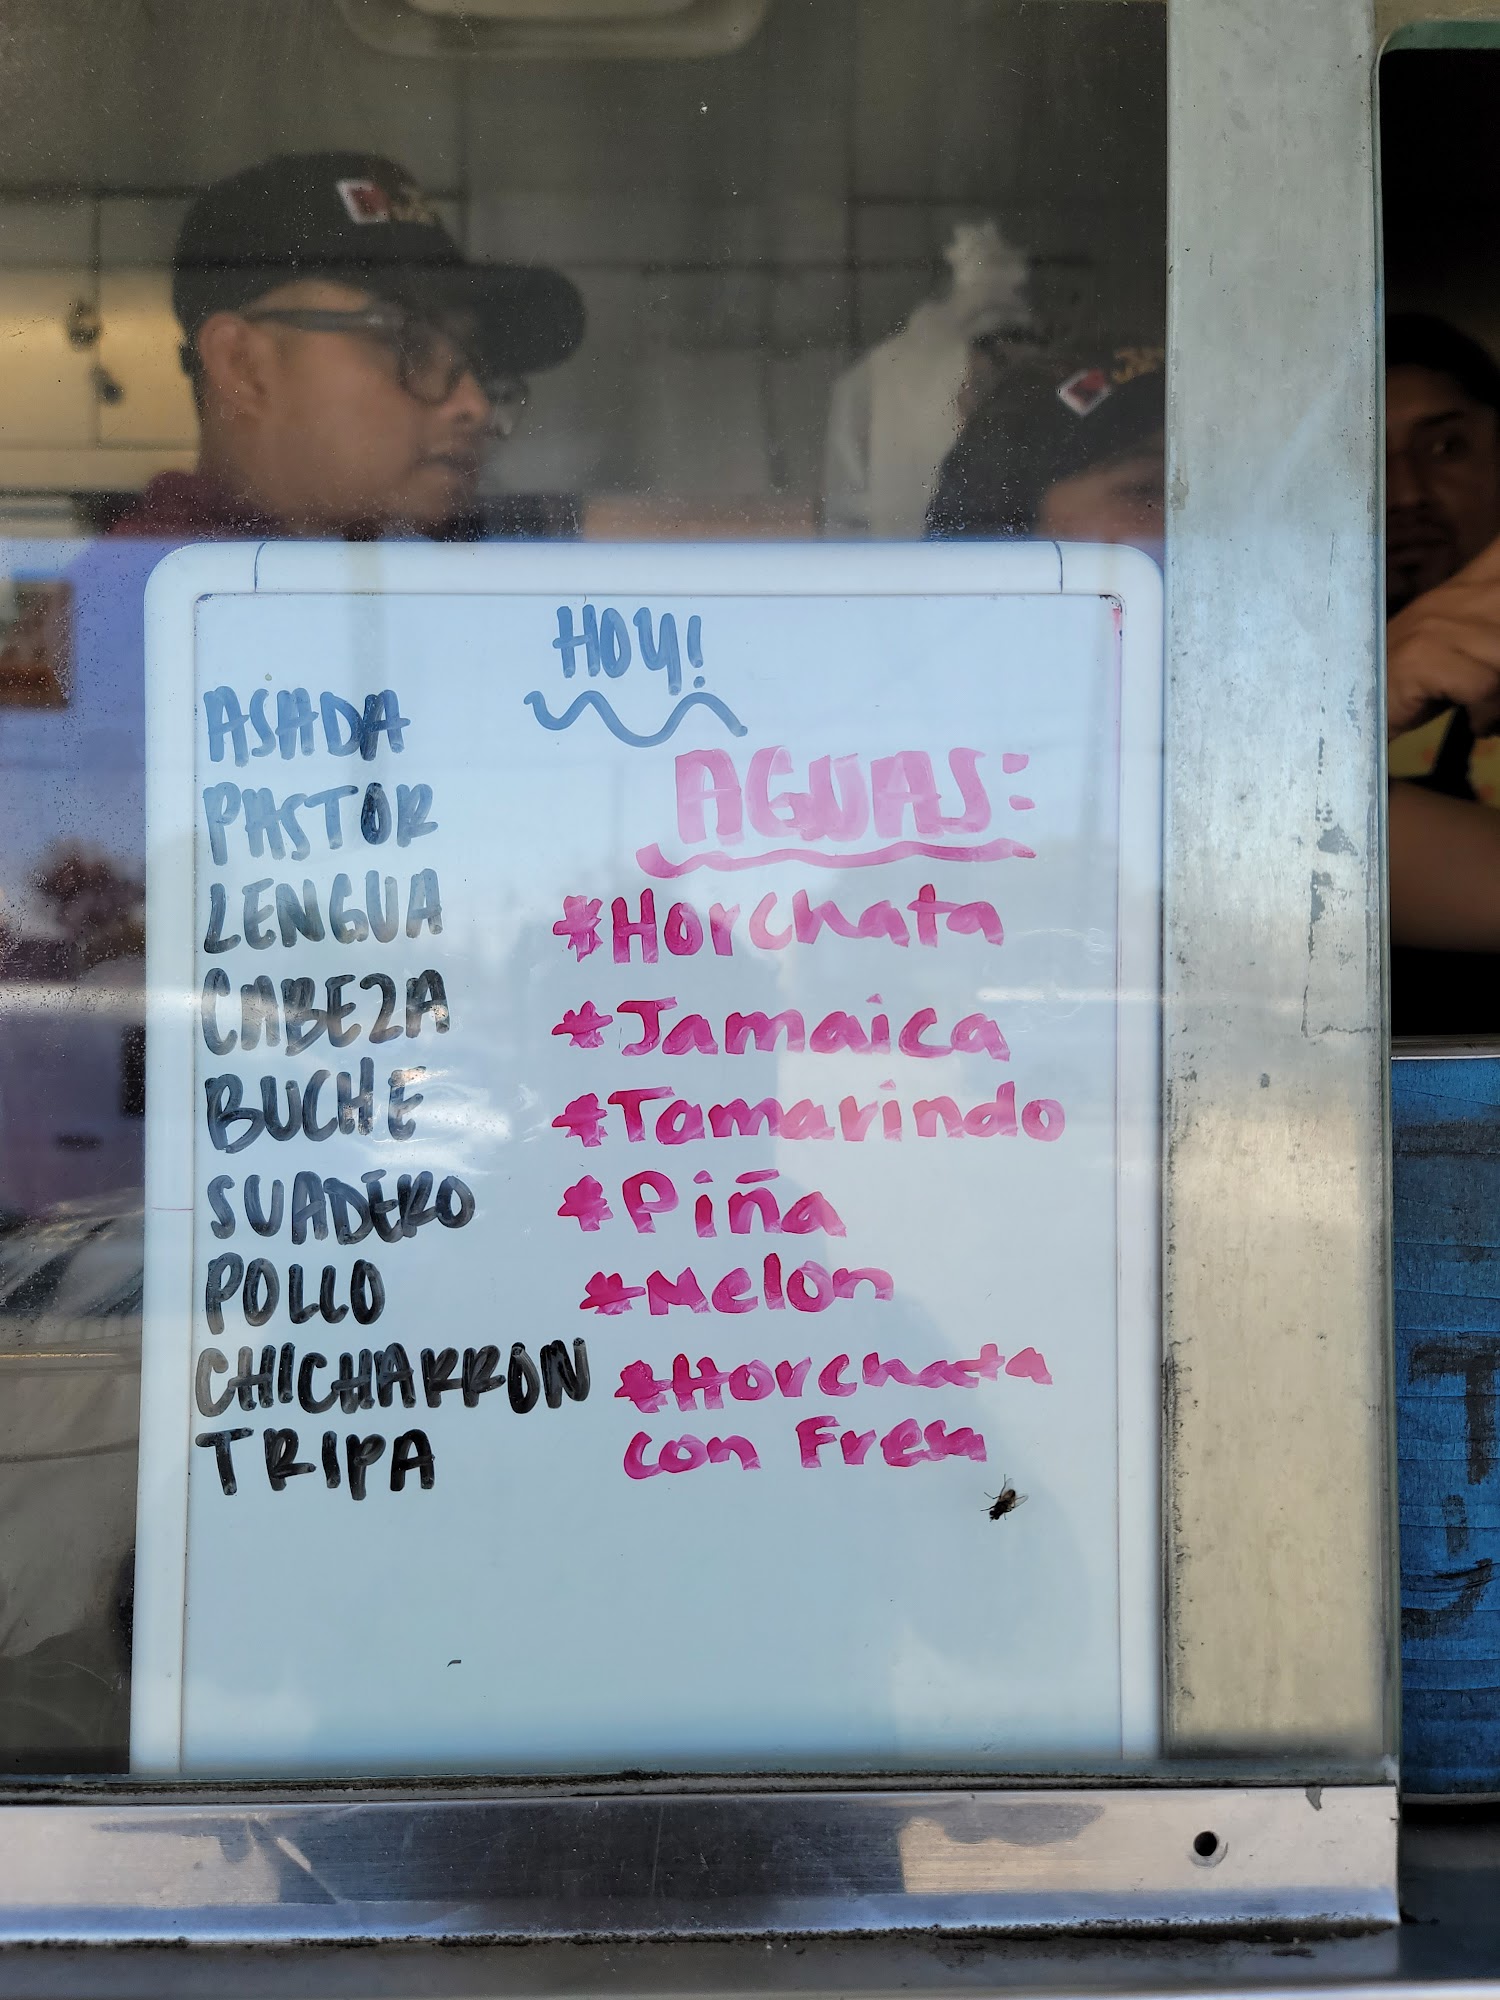 HOY!
ASADA
PASTOR
LENGUA
CABEZA
BUCHE
SUADERO
POLLO
CHICHARRON
TRIPA
AGUAS:
*Horchata
*Jamaica
*Tamarindo
*Piña
*Melon
*Horchata
con Fresa